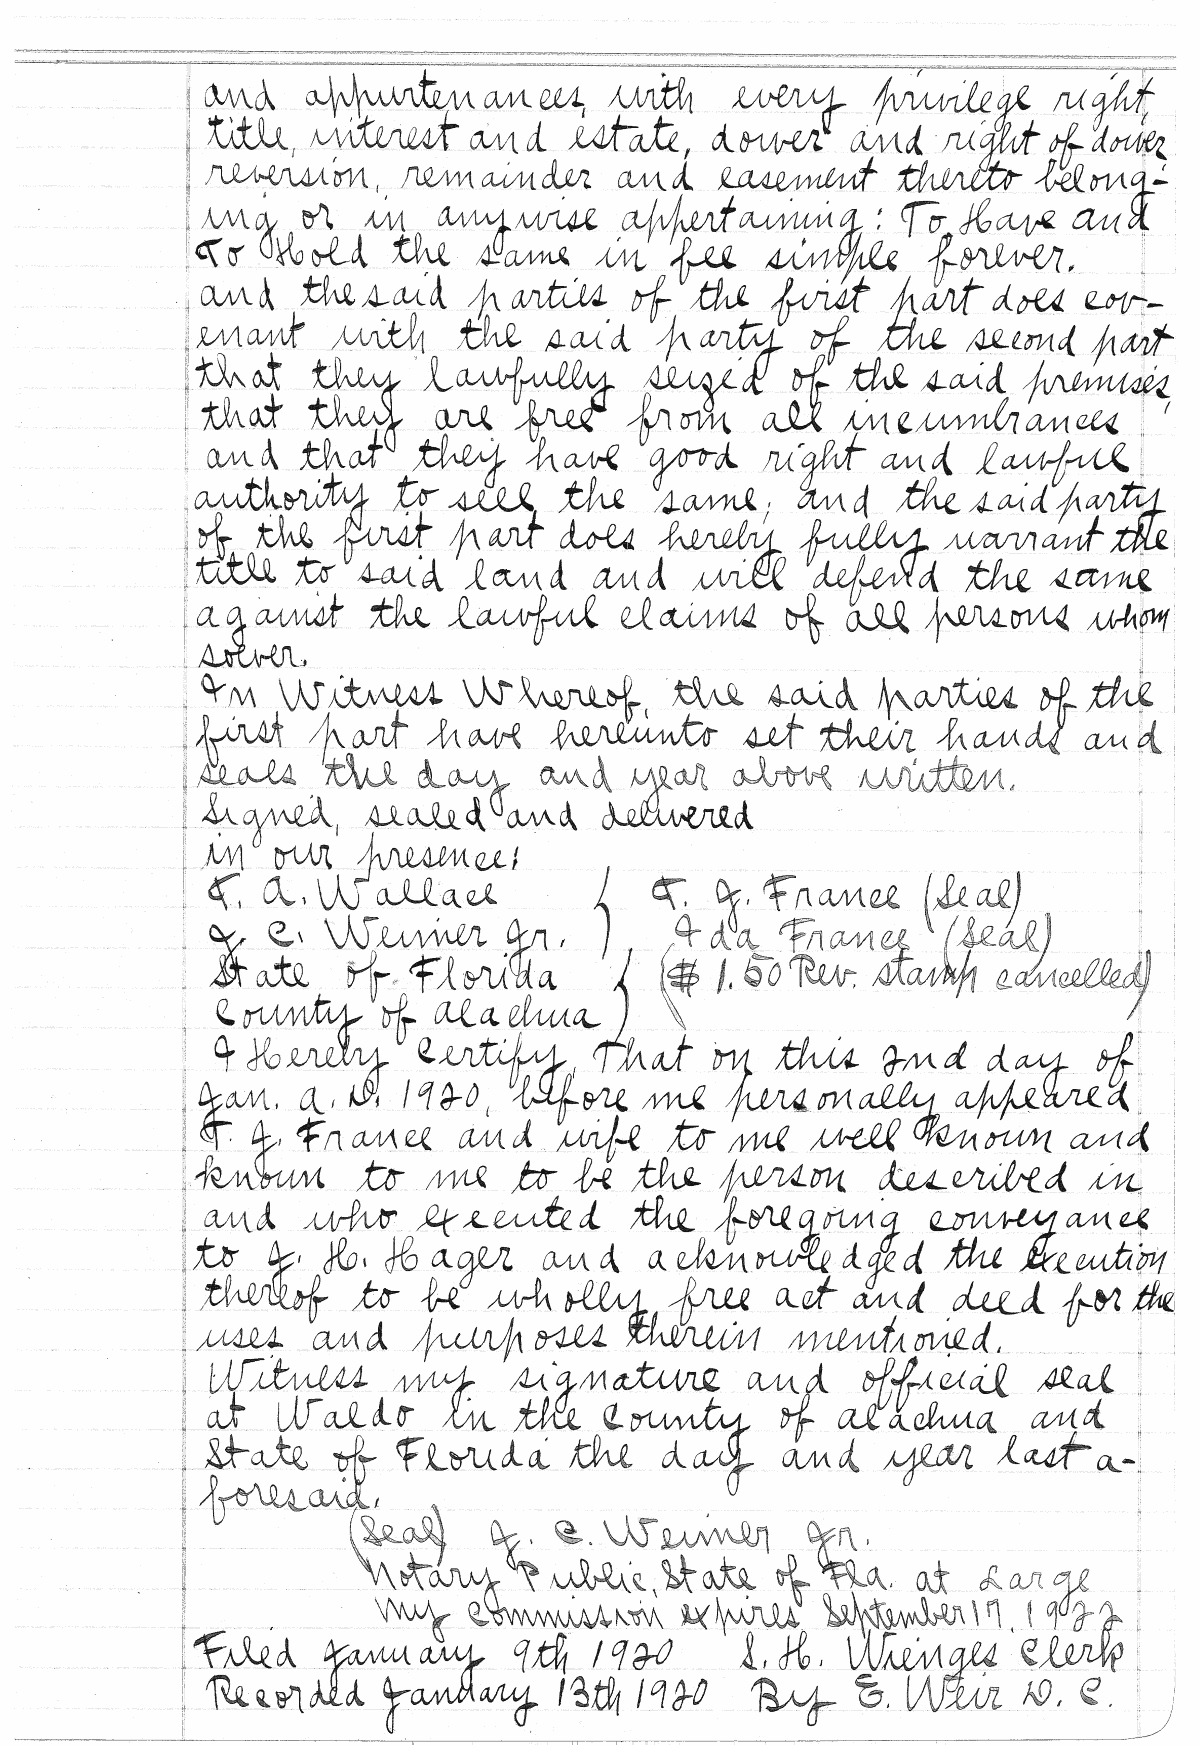 and appurtenances, with every privilege right,
title, interest and estate, dower and right of dower,
reversion, remainder and easement thereto belong-
ing or in anywise appertaining: To Have and
To Hold the same in fee simple forever.
and the said parties of the first part does cov-
enant with the said party of the second part
that they lawfully seized of the said premises,
that they are free from all incumbrances
and that they have good right and lawful
authority to sell the same; and the said party
of the first part does hereby fully warrant the
title to said land and will defend the same
against the lawful claims of all persons whom
soever.
In Witness Whereof, the said parties of the
first part have hereunto set their hands and
seals the day and year above written.
Signed, sealed and delivered
in our presence:
T. A. Wallace } T. J. France (Seal)
J. C. Weimer Jr. } Ida France (Seal)
State of Florida } ($1.50 Rev. stamp cancelled)
County of Alachua }
I Hereby Certify, That on this 2nd day of
Jan. A. D. 1920, before me personally appeared
T. J. France and wife to me well known and
known to me to be the person described in
and who executed the foregoing conveyance
to J. H. Hager and acknowledged the execution
thereof to be wholly free act and deed for the
uses and purposes therein mentioned.
Witness my signature and official seal
at Waldo in the County of Alachua and
State of Florida the day and year last a-
foresaid.
(Seal) J. C. Weimer Jr.
Notary Public, State of Fla. at Large
My commission expires September 17, 1922
Filed January 9th 1920 S. H. Wienges Clerk
Recorded January 13th 1920 By E. Weir D. C.